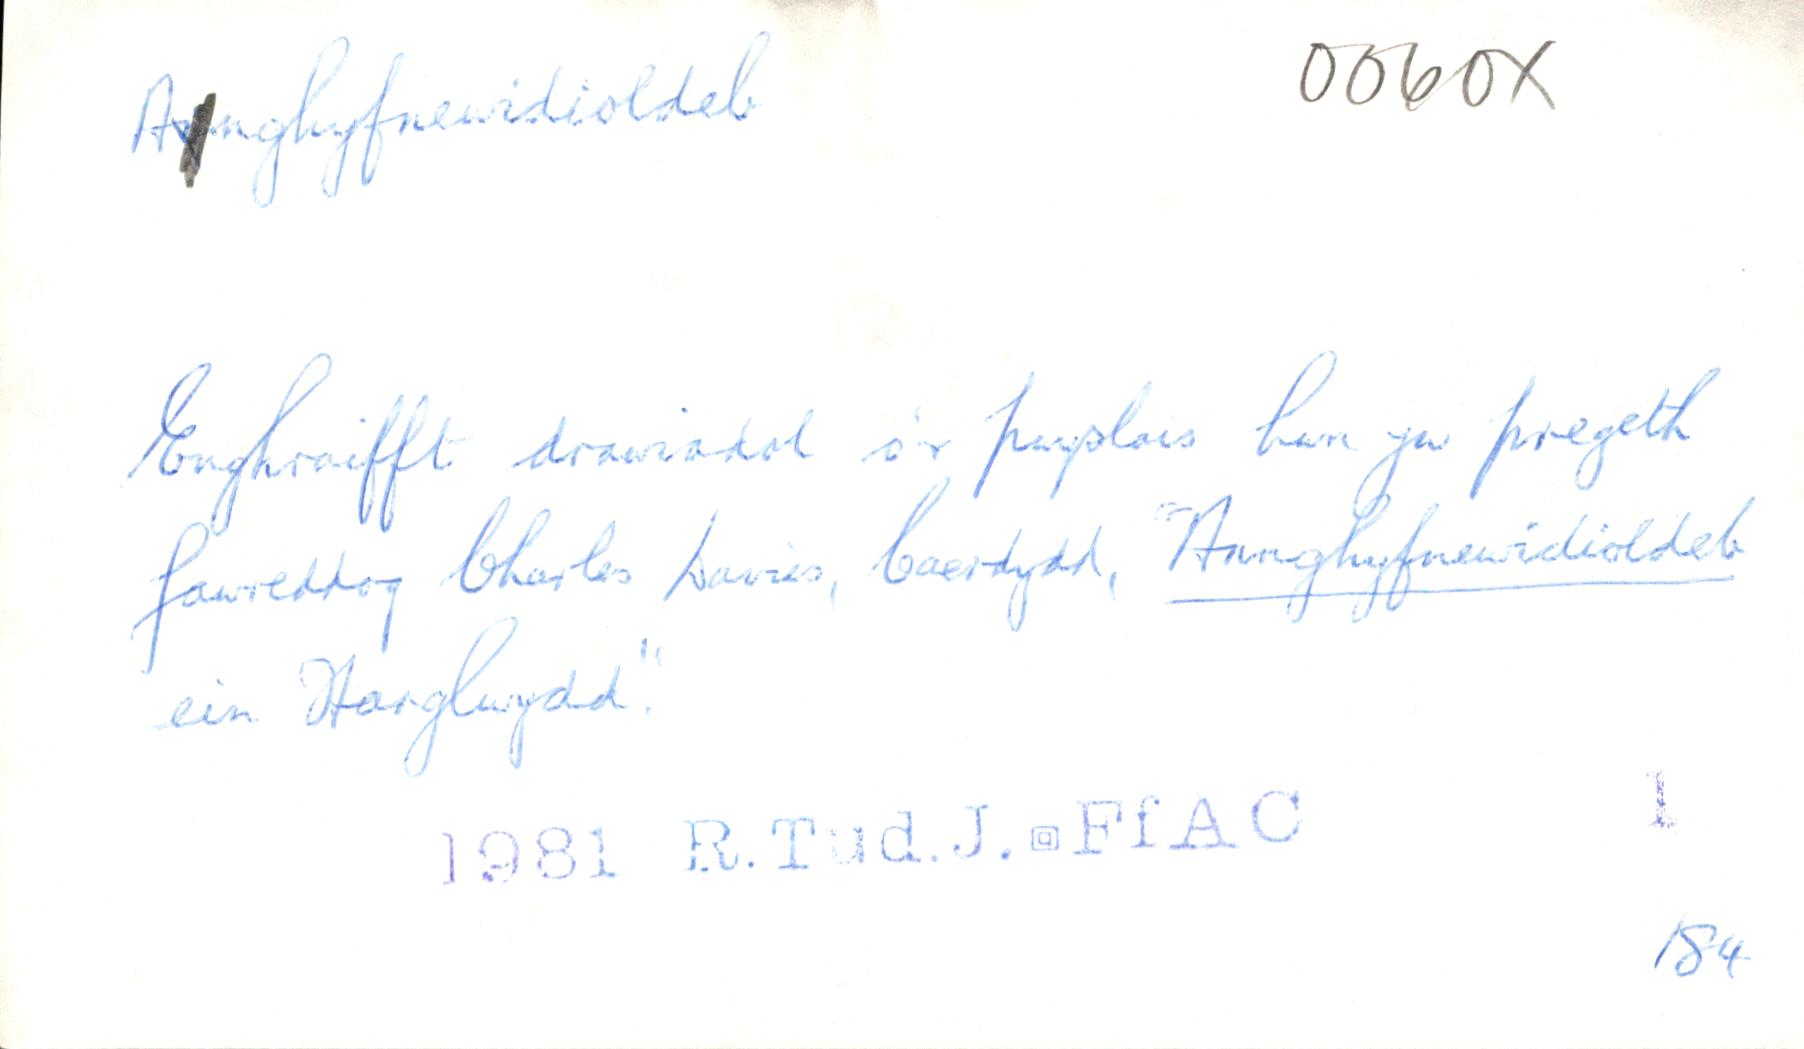 Anghyfnewidioldeb
0060X
Enghraifft drawiadol o'r pwyslais hwn yw pregeth
fawreddog Charles Davies, Caerdydd, "Annghyfnewidioldeb
ein Harglwydd".
1981 R.Tud.J. FfAC
1
184